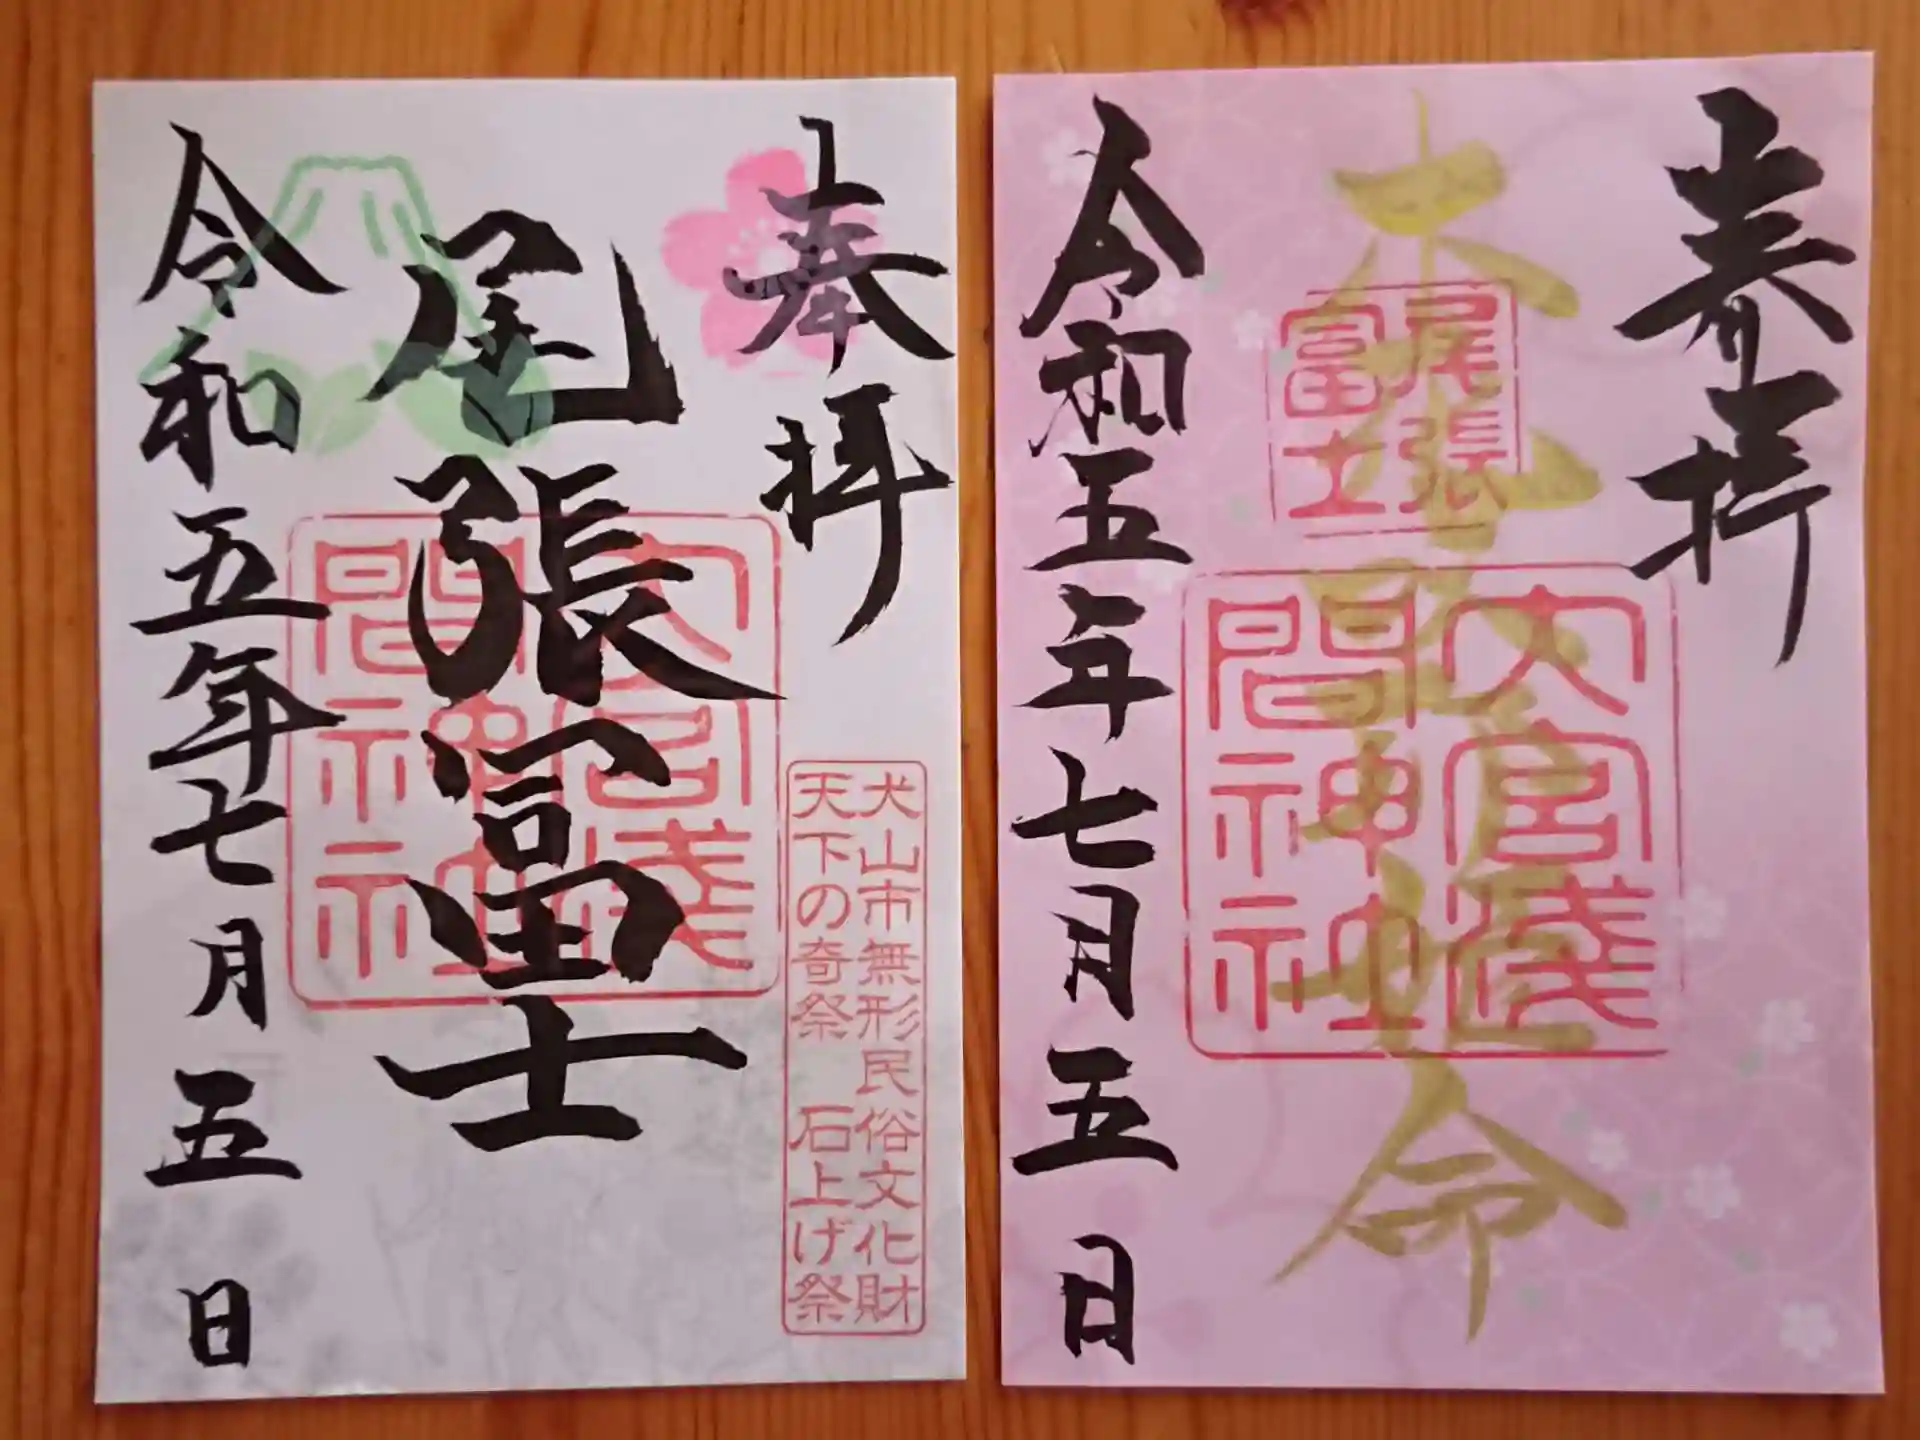 奉拝
尾張冨士
大宮浅間神社
犬山市無形民俗文化財
天下の奇祭 石上げ祭
令和五年七月五日
奉拝
木花開耶姫命
尾張
富士
大宮浅間神社
令和五年七月五日